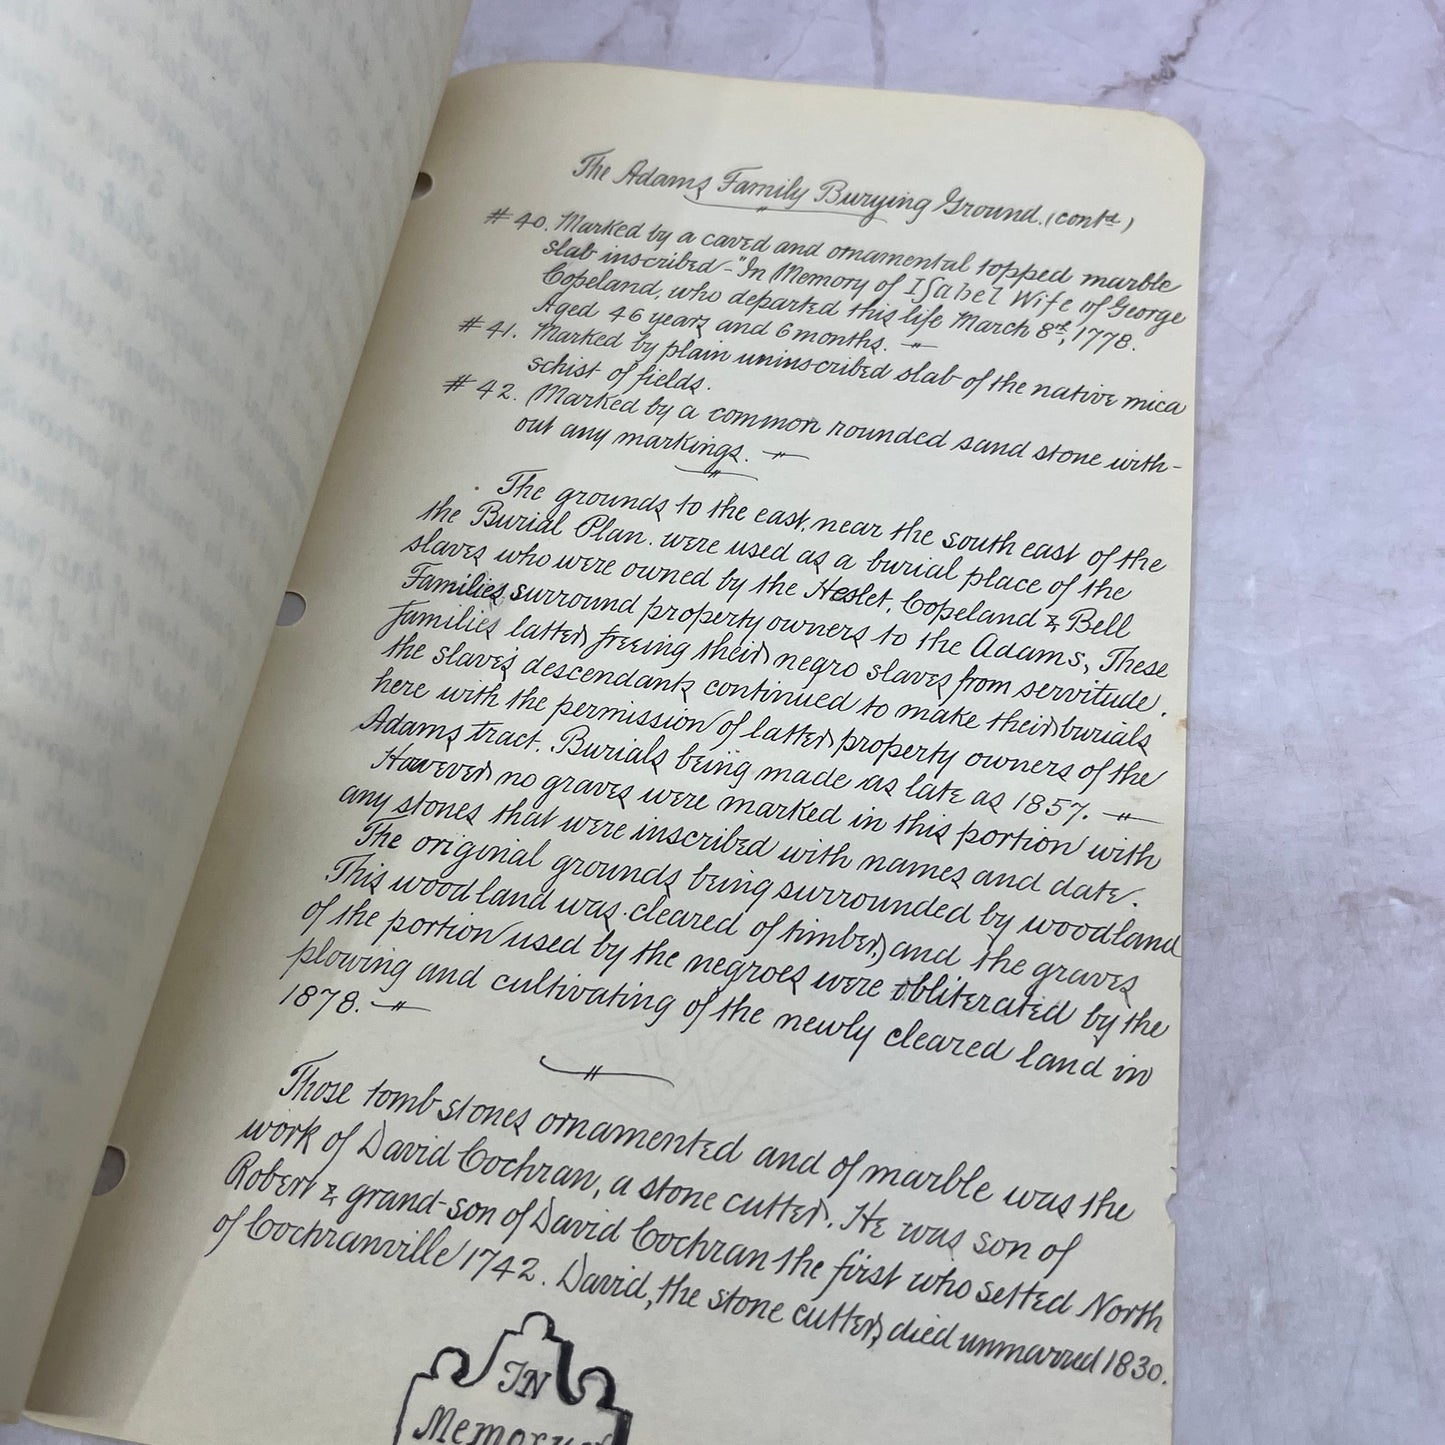 The Adams Family Burying Ground. (contd)
# 40. Marked by a caved and ornamental topped marble
slab inscribed - "In Memory of Isabel Wife of George
Copeland, who departed this life March 8th, 1778.
Aged 46 years and 6 months. - "
# 41. Marked by plain uninscribed slab of the native mica
schist of fields.
# 42. Marked by a common rounded sand stone with-
out any markings. - "
The grounds to the east, near the south east of the
the Burial Plan. were used as a burial place of the
slaves who were owned by the Heslet, Copeland & Bell
Families surround property owners to the Adams, These
families latter freeing their negro slaves from servitude.
the slaves descendants continued to make their burials
here with the permission of latter property owners of the
Adams tract. Burials being made as late as 1857. - "
However no graves were marked in this portion with
any stones that were inscribed with names and date.
The original grounds being surrounded by woodland
This woodland was cleared of timber, and the graves
of the portion used by the negroes were obliterated by the
plowing and cultivating of the newly cleared land in
1878. - "
Those tomb stones ornamented and of marble was the
work of David Cochran, a stone cutter. He was son of
Robert & grand-son of David Cochran the first who setted North
of Cochranville 1742. David, the stone cutter, died unmarred 1830.
IN
Memory of